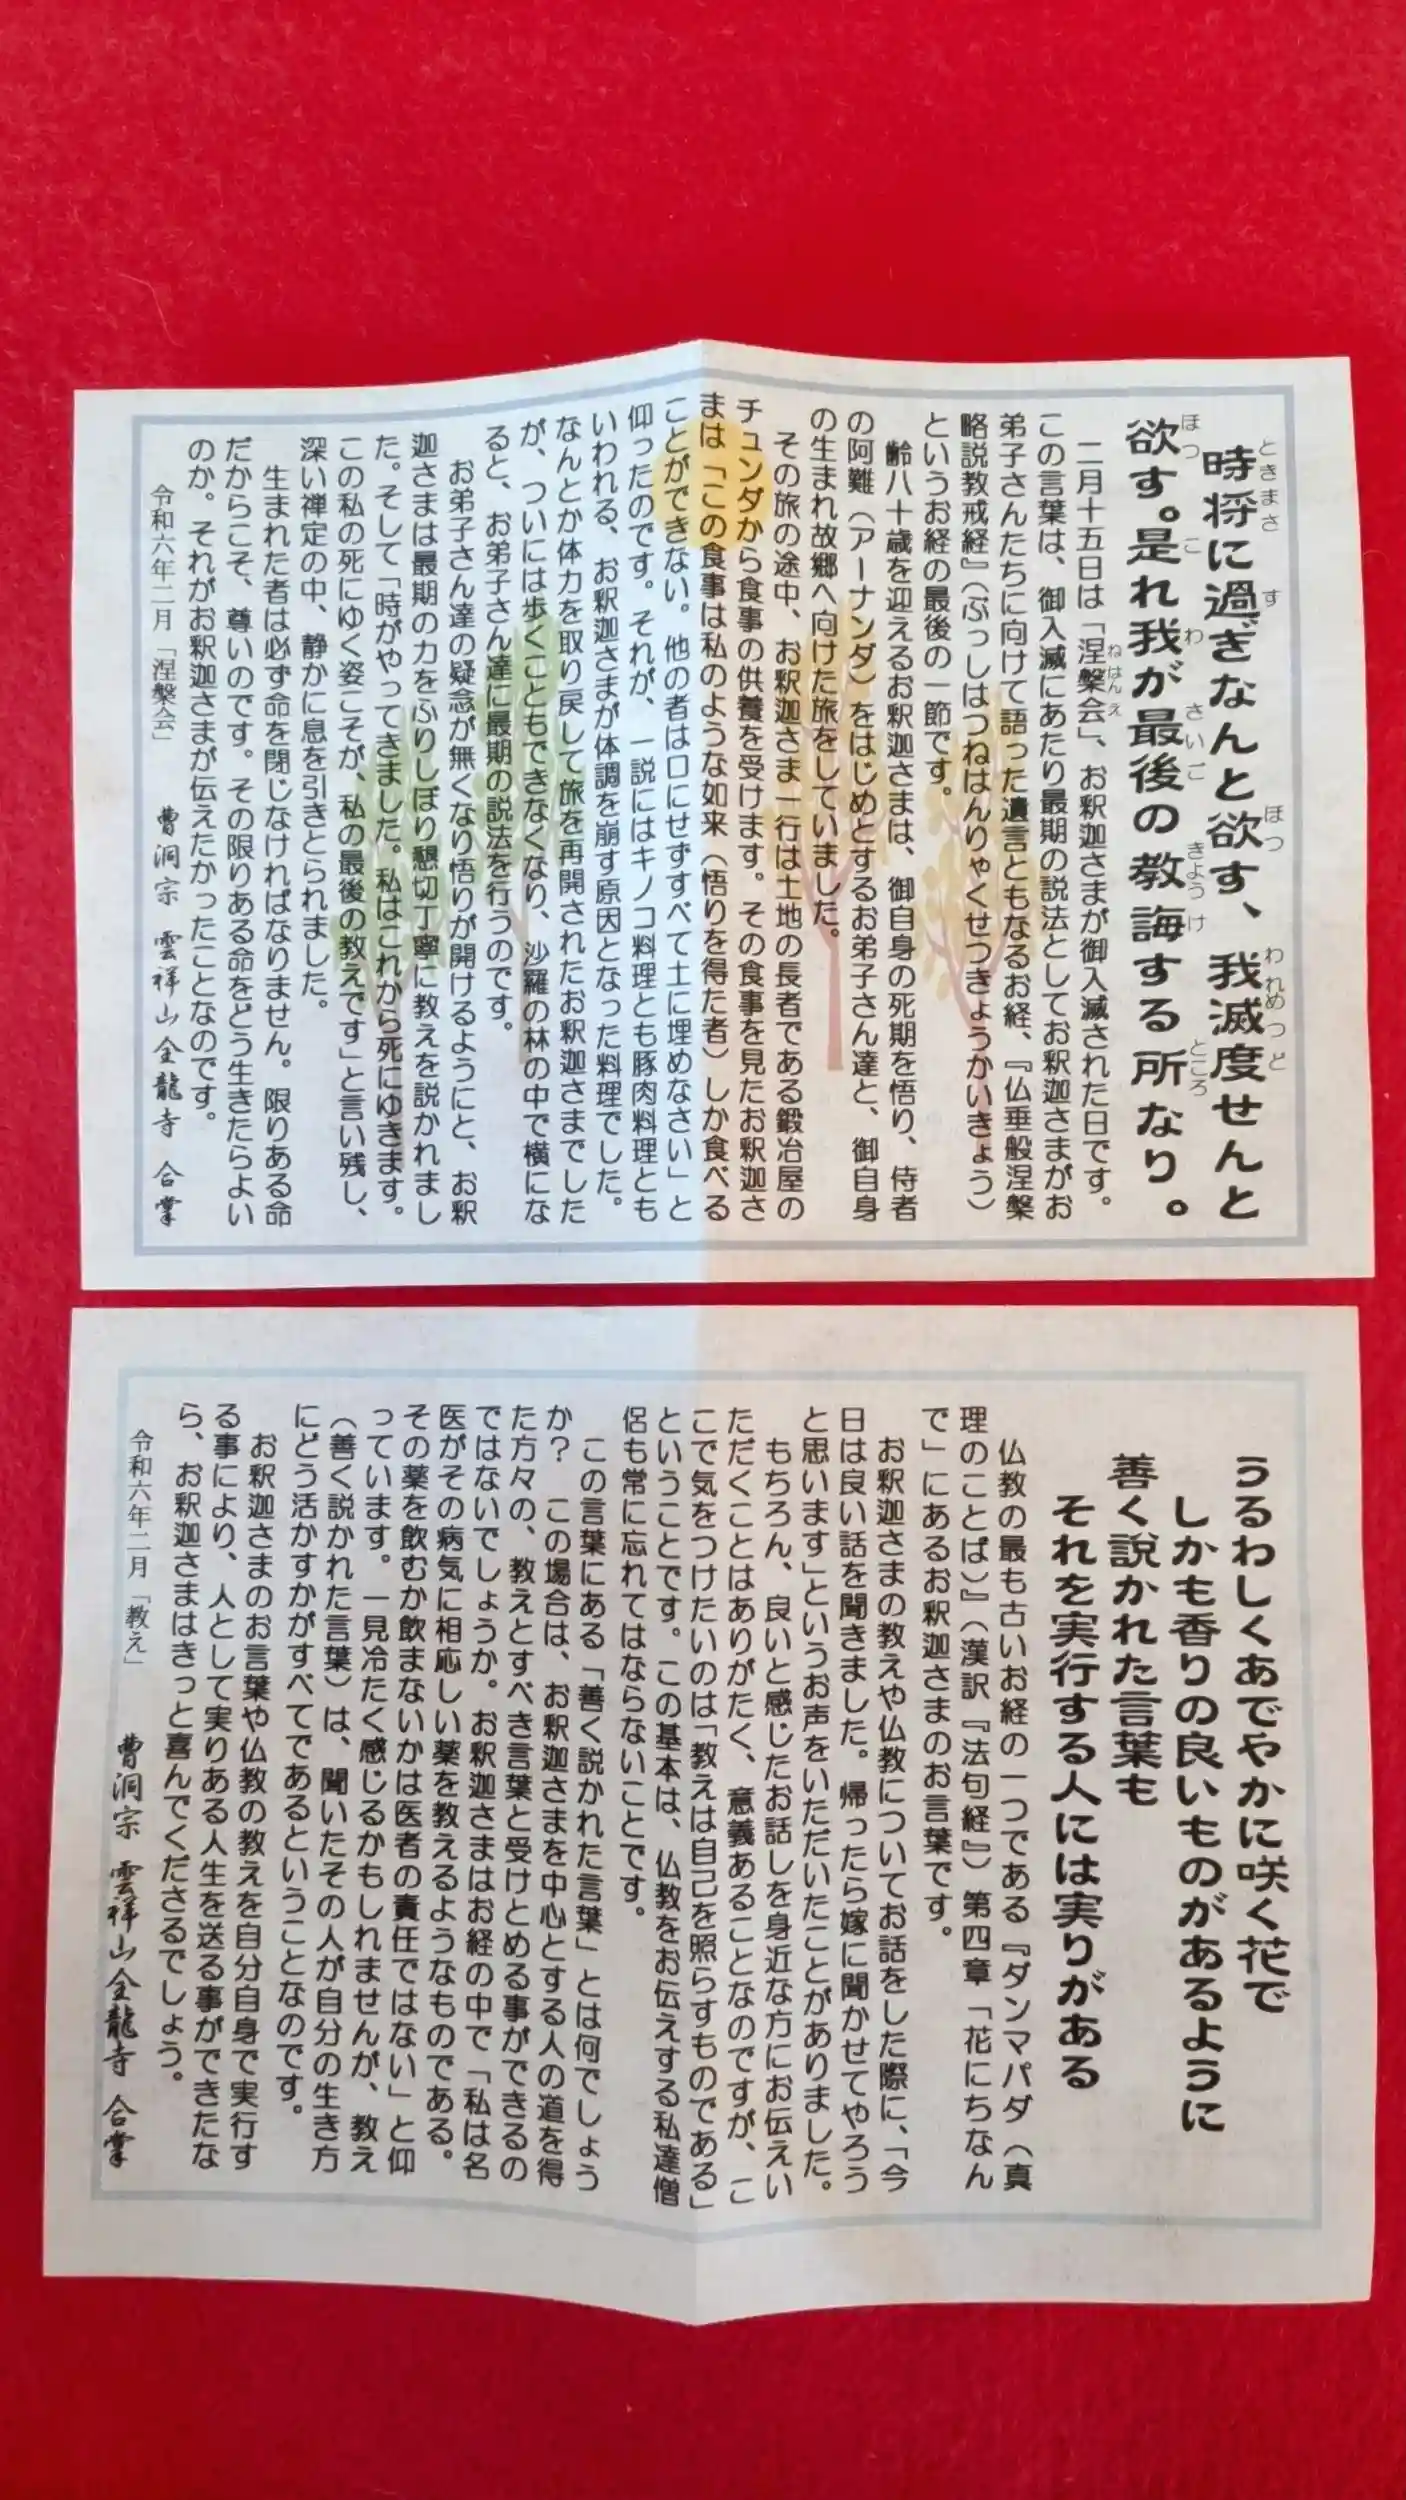 時将に過ぎなんと欲す、我滅度せんと
欲す。是れ我が最後の教誨する所なり。
二月十五日は「涅槃会」、お釈迦さまが御入滅された日です。
この言葉は、御入滅にあたり最期の説法としてお釈迦さまがお
弟子さんたちに向けて語った遺言ともなるお経、『仏垂般涅槃
略説教戒経』（ぶっしはつねはんりゃくせつきょうかいきょう）
というお経の最後の一節です。
齢八十歳を迎えるお釈迦さまは、御自身の死期を悟り、侍者
の阿難（アーナンダ）をはじめとするお弟子さん達と、御自身
の生まれ故郷へ向けた旅をしていました。
その旅の途中、お釈迦さま一行は土地の長者である鍛冶屋の
チュンダから食事の供養を受けます。その食事を見たお釈迦さ
まは「この食事は私のような如来（悟りを得た者）しか食べる
ことができない。他の者は口にせずすべて土に埋めなさい」と
仰ったのです。それが、一説にはキノコ料理とも豚肉料理とも
いわれる、お釈迦さまが体調を崩す原因となった料理でした。
なんとか体力を取り戻して旅を再開されたお釈迦さまでした
が、ついには歩くこともできなくなり、沙羅の林の中で横にな
ると、お弟子さん達に最期の説法を行うのです。
お弟子さん達の疑念が無くなり悟りが開けるようにと、お釈
迦さまは最期の力をふりしぼり懇切丁寧に教えを説かれまし
た。そして「時がやってきました。私はこれから死にゆきます。
この私の死にゆく姿こそが、私の最後の教えです」と言い残し、
深い禅定の中、静かに息を引きとられました。
生まれた者は必ず命を閉じなければなりません。限りある命
だからこそ、尊いのです。その限りある命をどう生きたらよい
のか。それがお釈迦さまが伝えたかったことなのです。
令和六年二月「涅槃会」 曹洞宗 雲祥山全龍寺 合掌
うるわしくあでやかに咲く花で
しかも香りの良いものがあるように
善く説かれた言葉も
それを実行する人には実りがある
仏教の最も古いお経の一つである『ダンマパダ（真
理のことば）』（漢訳『法句経』）第四章「花にちなん
で」にあるお釈迦さまのお言葉です。
お釈迦さまの教えや仏教についてお話をした際に、「今
日は良い話を聞きました。帰ったら嫁に聞かせてやろう
と思います」というお声をいただいたことがありました。
もちろん、良いと感じたお話しを身近な方にお伝えい
ただくことはありがたく、意義あることなのですが、こ
こで気をつけたいのは「教えは自己を照らすものである」
ということです。この基本は、仏教をお伝えする私達僧
侶も常に忘れてはならないことです。
この言葉にある「善く説かれた言葉」とは何でしょう
か？ この場合は、お釈迦さまを中心とする人の道を得
た方々の、教えとすべき言葉と受けとめる事ができるの
ではないでしょうか。お釈迦さまはお経の中で「私は名
医がその病気に相応しい薬を教えるようなものである。
その薬を飲むか飲まないかは医者の責任ではない」と仰
っています。一見冷たく感じるかもしれませんが、教え
（善く説かれた言葉）は、聞いたその人が自分の生き方
にどう活かすかがすべてであるということなのです。
お釈迦さまのお言葉や仏教の教えを自分自身で実行す
る事により、人として実りある人生を送る事ができたな
ら、お釈迦さまはきっと喜んでくださるでしょう。
令和六年二月「教え」 曹洞宗 雲祥山全龍寺 合掌